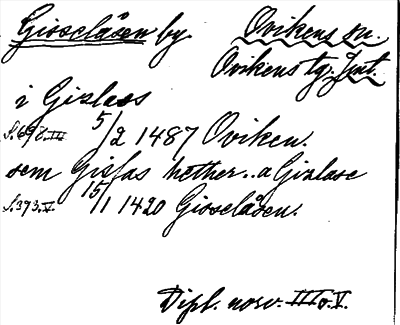 Gioselåsen by. Ovikens sn.
Ovikens tg. Jmt.
i Gislaas
S. 698. III 5/2 1487 Oviken.
sem Gislas hether .. a Gislase
S. 393. V. 15/1 1420 Gioselåsen.
Dipl. norv. III o. V.